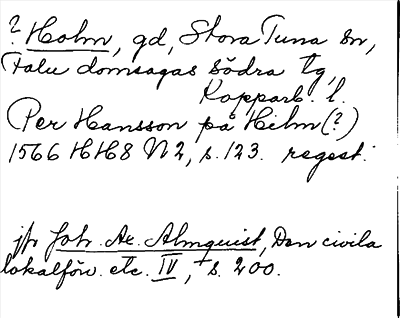 ? Holm, gd, Stora Tuna sn,
Falu domsagas södra tg,
Kopparb. l.
Per Hansson på Hilm (?)
1566 HH8 N2, s. 123. regest.
jfr Joh. Ax. Almquist, Den civila
lokalförv. etc. IV, + s. 200.